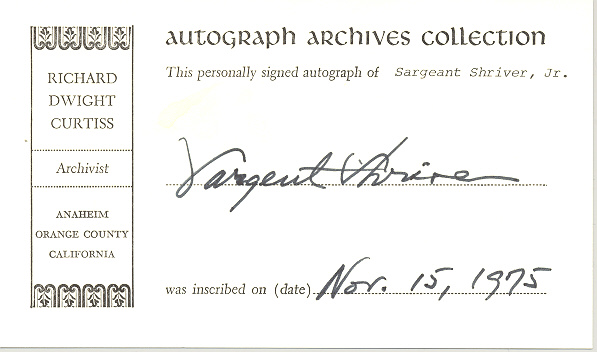 AUTOGRAPH ARCHIVES COLLECTION
This personally signed autograph of Sargeant Shriver, Jr.
RICHARD
DWIGHT
CURTISS
Archivist
ANAHEIM
ORANGE COUNTY
CALIFORNIA
Sargent Shriver
was inscribed on (date) Nov. 15, 1975